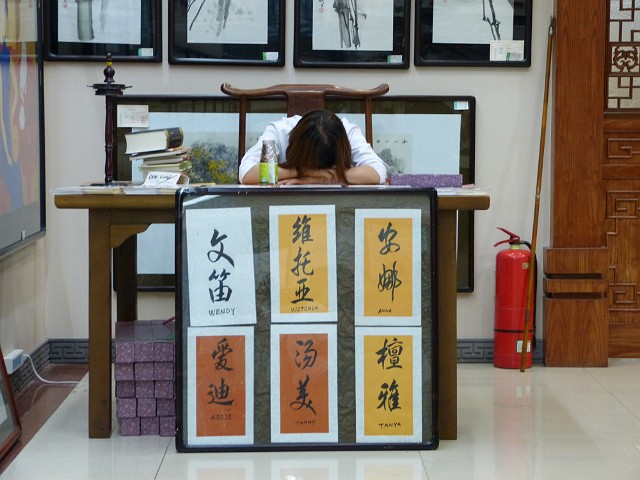 文笛
WENDY
维托亚
VICTORIA
安娜
ANNA
爱迪
ADDIE
汤美
TOMMY
檀雅
TANYA